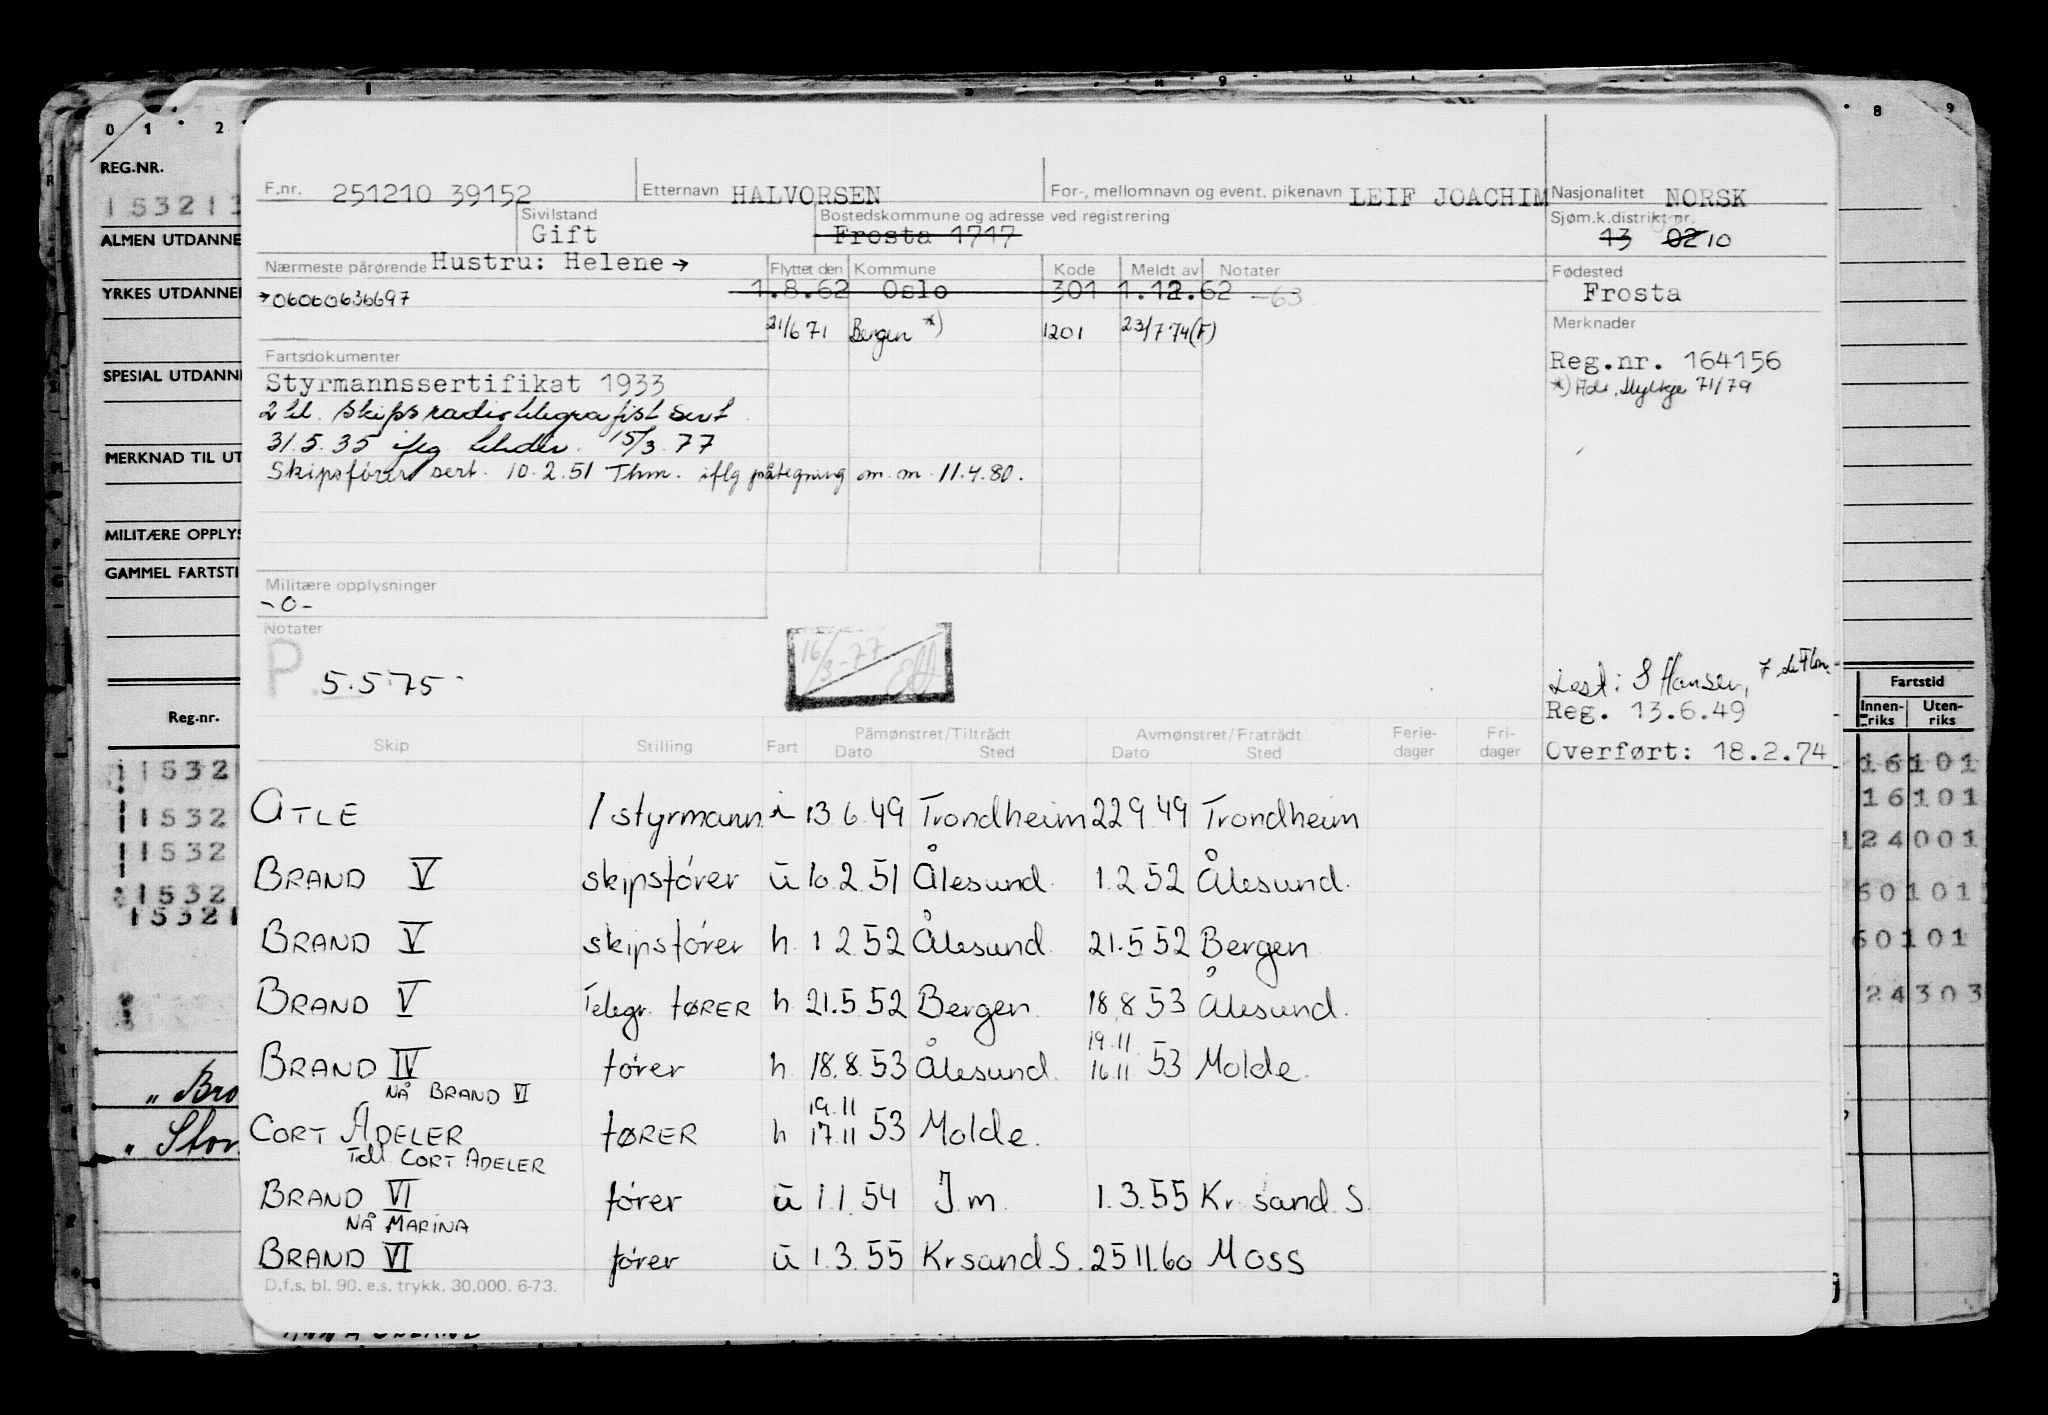 0 1 2 8 9
REG.NR.
15321
ALMEN UTDANNE
YRKES UTDANNE
SPESIAL UTDANN
MERKNAD TIL UT
MILITÆRE OPPLYS
GAMMEL FARTSTI
Reg.nr.
11532
11532
11532
1532
15321
„ Bro
„ Stor
F.nr. 251210 39152 Etternavn HALVORSEN For-, mellomnavn og event. pikenavn LEIF JOACHIM Nasjonalitet NORSK
Sivilstand Bostedskommune og adresse ved registrering Sjøm.k.distrikt nr.
Gift Frosta 1717 13 02 10
Nærmeste pårørende Hustru: Helene → Flyttet den Kommune Kode Meldt av Notater Fødested
→06060636697 1.8.62 Oslo 301 1.12.62 -63 Frosta
21/6 71 Bergen *) 1201 23/7 74(F) Merknader
Fartsdokumenter Reg.nr. 164156
Styrmannssertifikat 1933 *) Adr. 71/79
2 kl. skipsradiotelegrafist sert
31.5.35 iflg 15/3.77
Skipsfører sert. 10.2.51 Thm. iflg påtegning om. m. 11.4.80.
Militære opplysninger
-0-
Notater
P. 5.5.75 16/3-77
S Hansen,
Reg. 13.6.49
Overført: 18.2.74
Skip Stilling Fart Påmønstret/Tiltrådt Avmønstret/Fratrådt Ferie- Fri-
Dato Sted Dato Sted dager dager
ATLE 1 styrmann i 13 6.49 Trondheim 22 9.49 Trondheim
BRAND V skipsfører u 10.2.51 Ålesund. 1.2.52 Ålesund.
BRAND V skipsfører h. 1 2.52 Ålesund. 21.5.52 Bergen
BRAND V Telegr. FØRER h. 21.5.52 Bergen. 18.8.53 Ålesund.
19.11
BRAND IV fører h 18.8.53 Ålesund. 16.11 53 Molde.
NÅ BRAND VI
19.11
CORT ADELER FØRER h 17.11 53 Molde.
Tidl CORT ADELER
BRAND VI fører u 1.1.54 Jm. 1.3.55 Kr. sand. S.
NÅ MARINA
BRAND VI fører u 1.3.55 Krsand.S. 25 11.60 Moss
D.f.s. bl. 90. e.s. trykk. 30.000. 6-73.
Fartstid
Innen- Uten-
riks riks
16101
16101
24001
60101
60101
24303